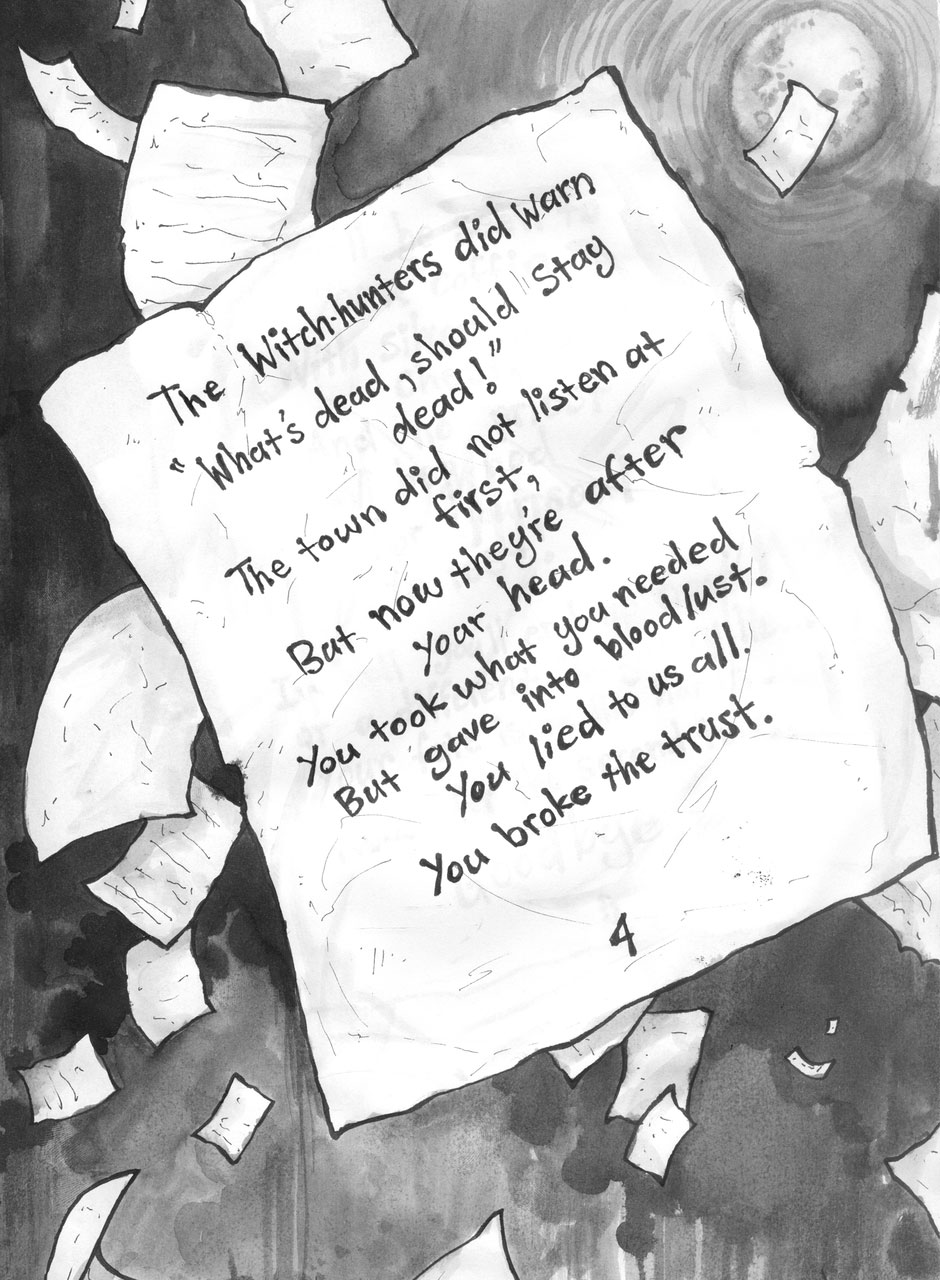 The Witch-hunters did warn
"What's dead, should stay
dead!"
The town did not listen at
first,
But now they're after
your head.
You took what you needed
But gave into bloodlust.
You lied to us all.
You broke the trust.
4